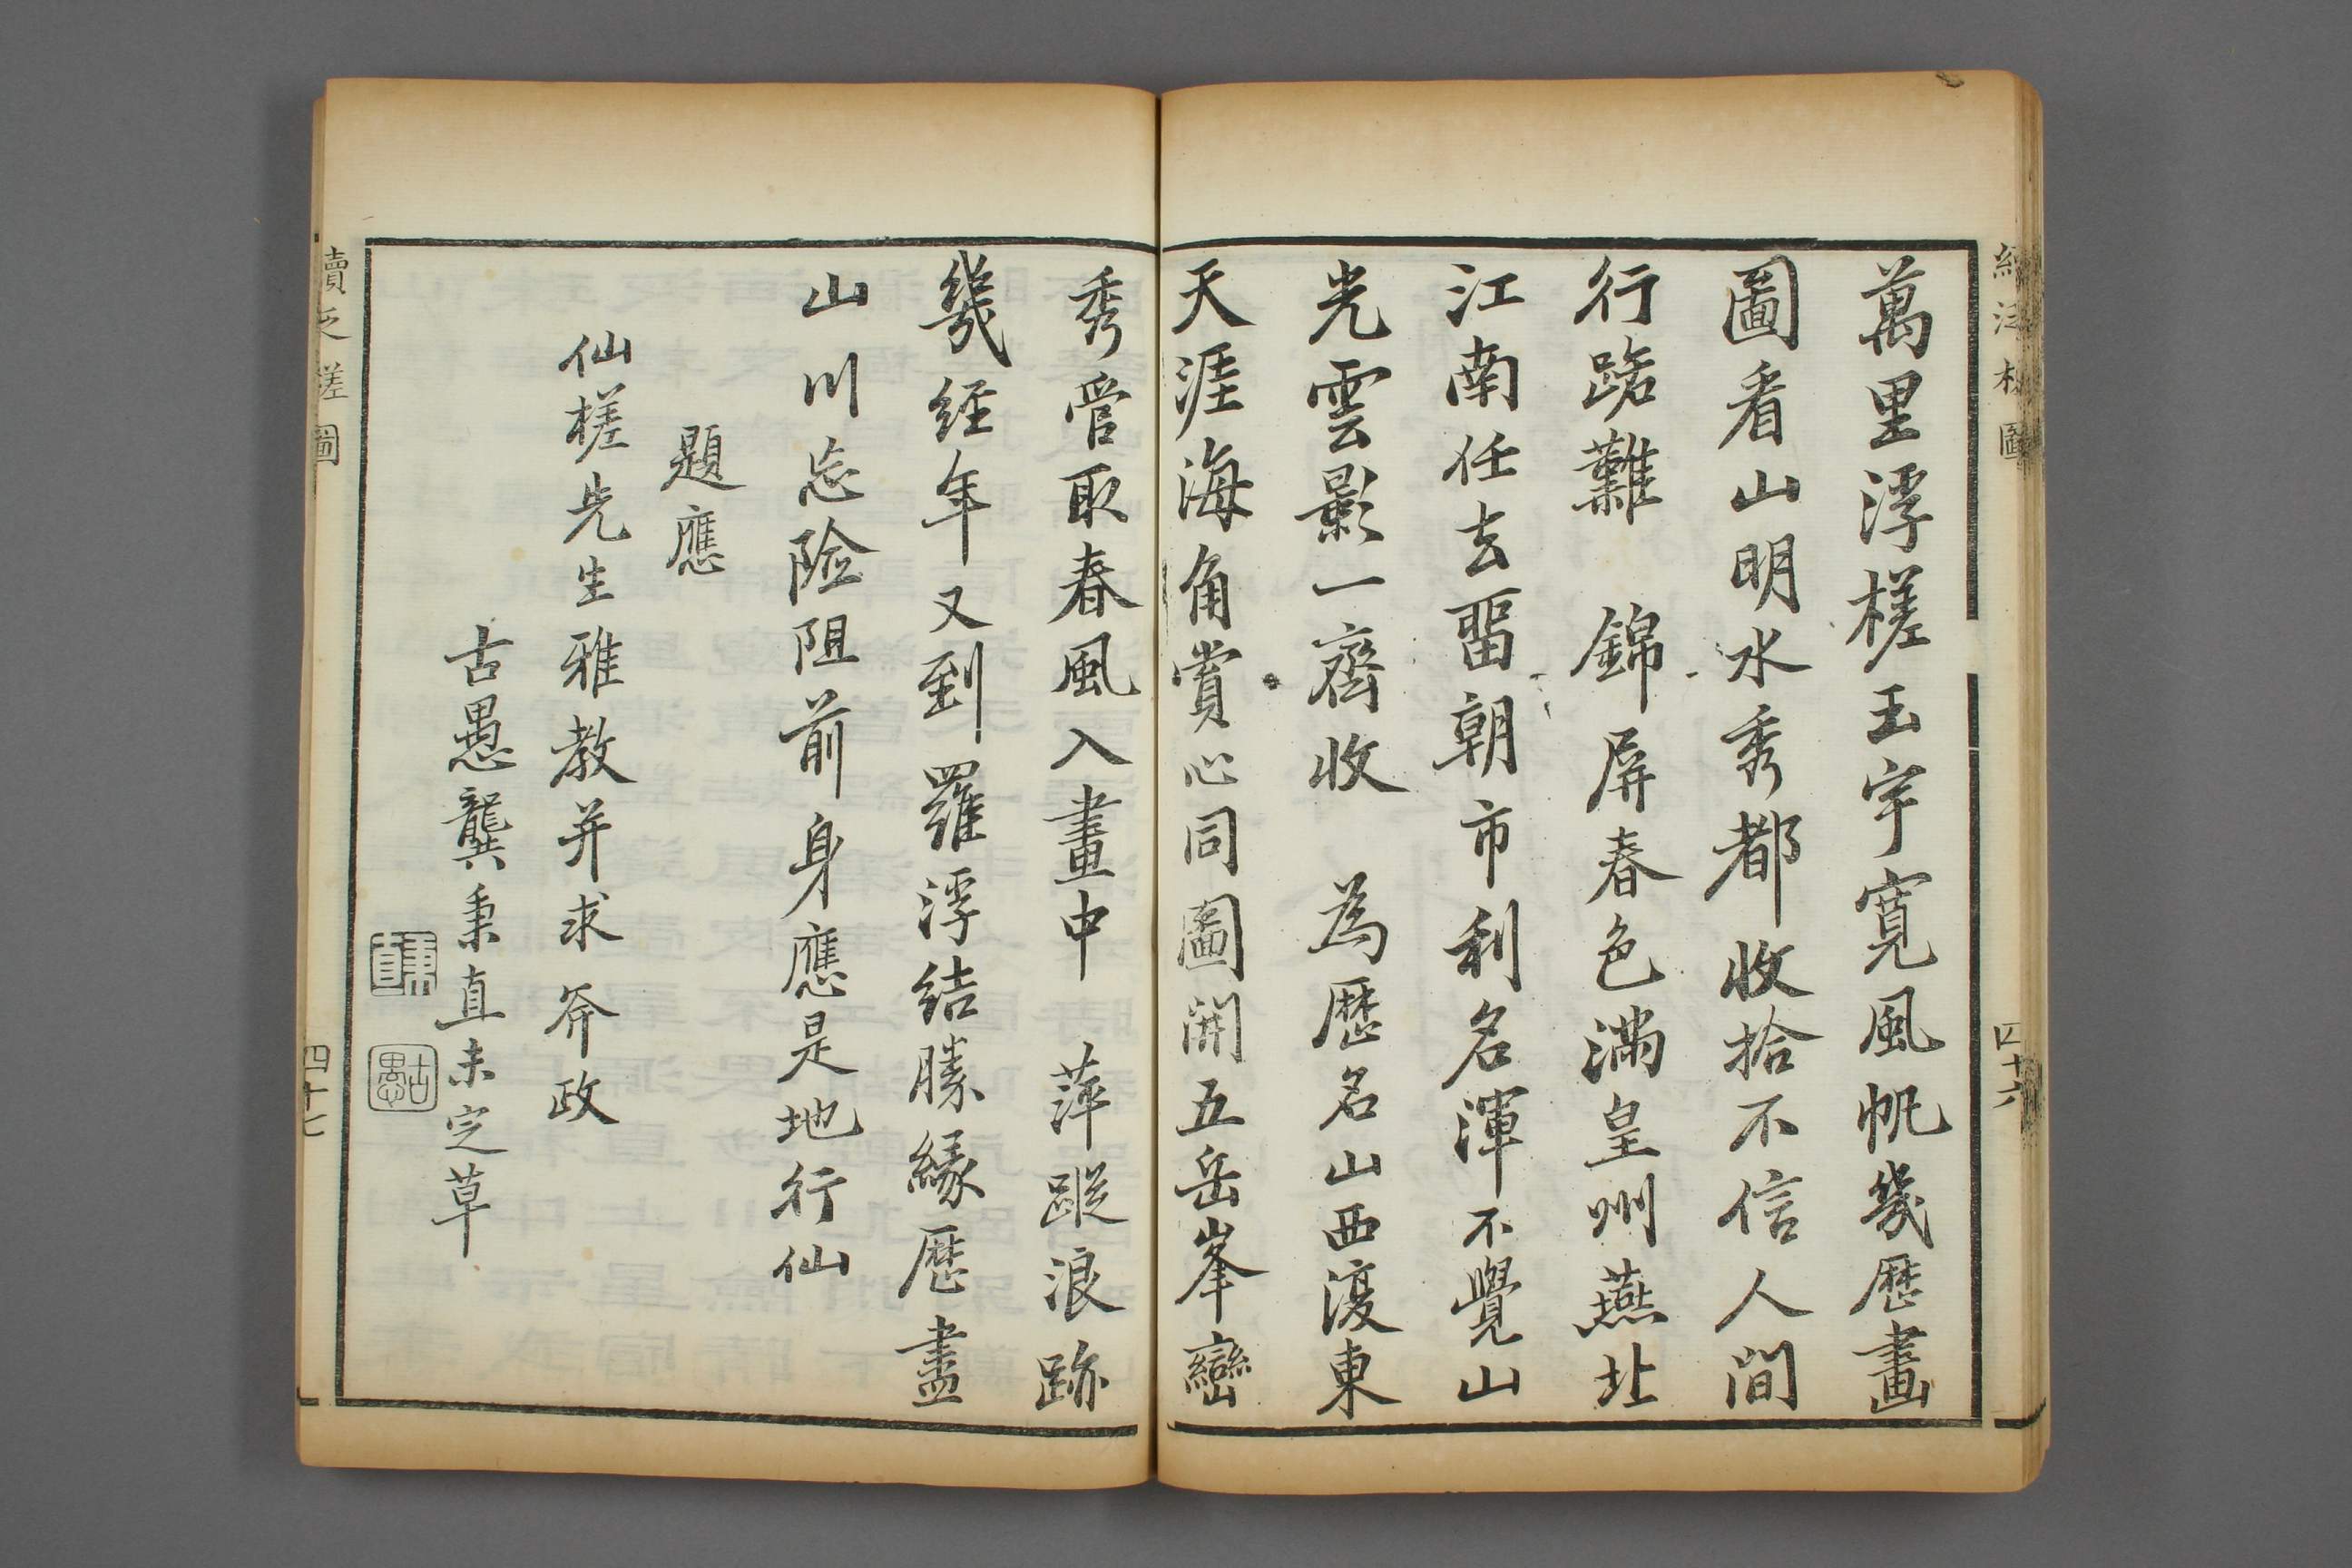 萬里浮槎玉宇寬風帆幾歷畫
圖看山明水秀都收拾不信人間
行路難　錦屏春色滿皇州燕北
江南任去留朝市利名渾不覺山
光雲影一齊收　為歷名山西復東
天涯海角賞心同圖開五岳峯巒
秀管取春風入畫中　萍蹤浪跡
幾經年又到羅浮結勝緣歷盡
山川忘險阻前身應是地行仙
題應
仙槎先生雅教并求斧政
古愚龔秉直未定草
秉直
古愚
續泛槎圖
四十六
續泛槎圖
四十七